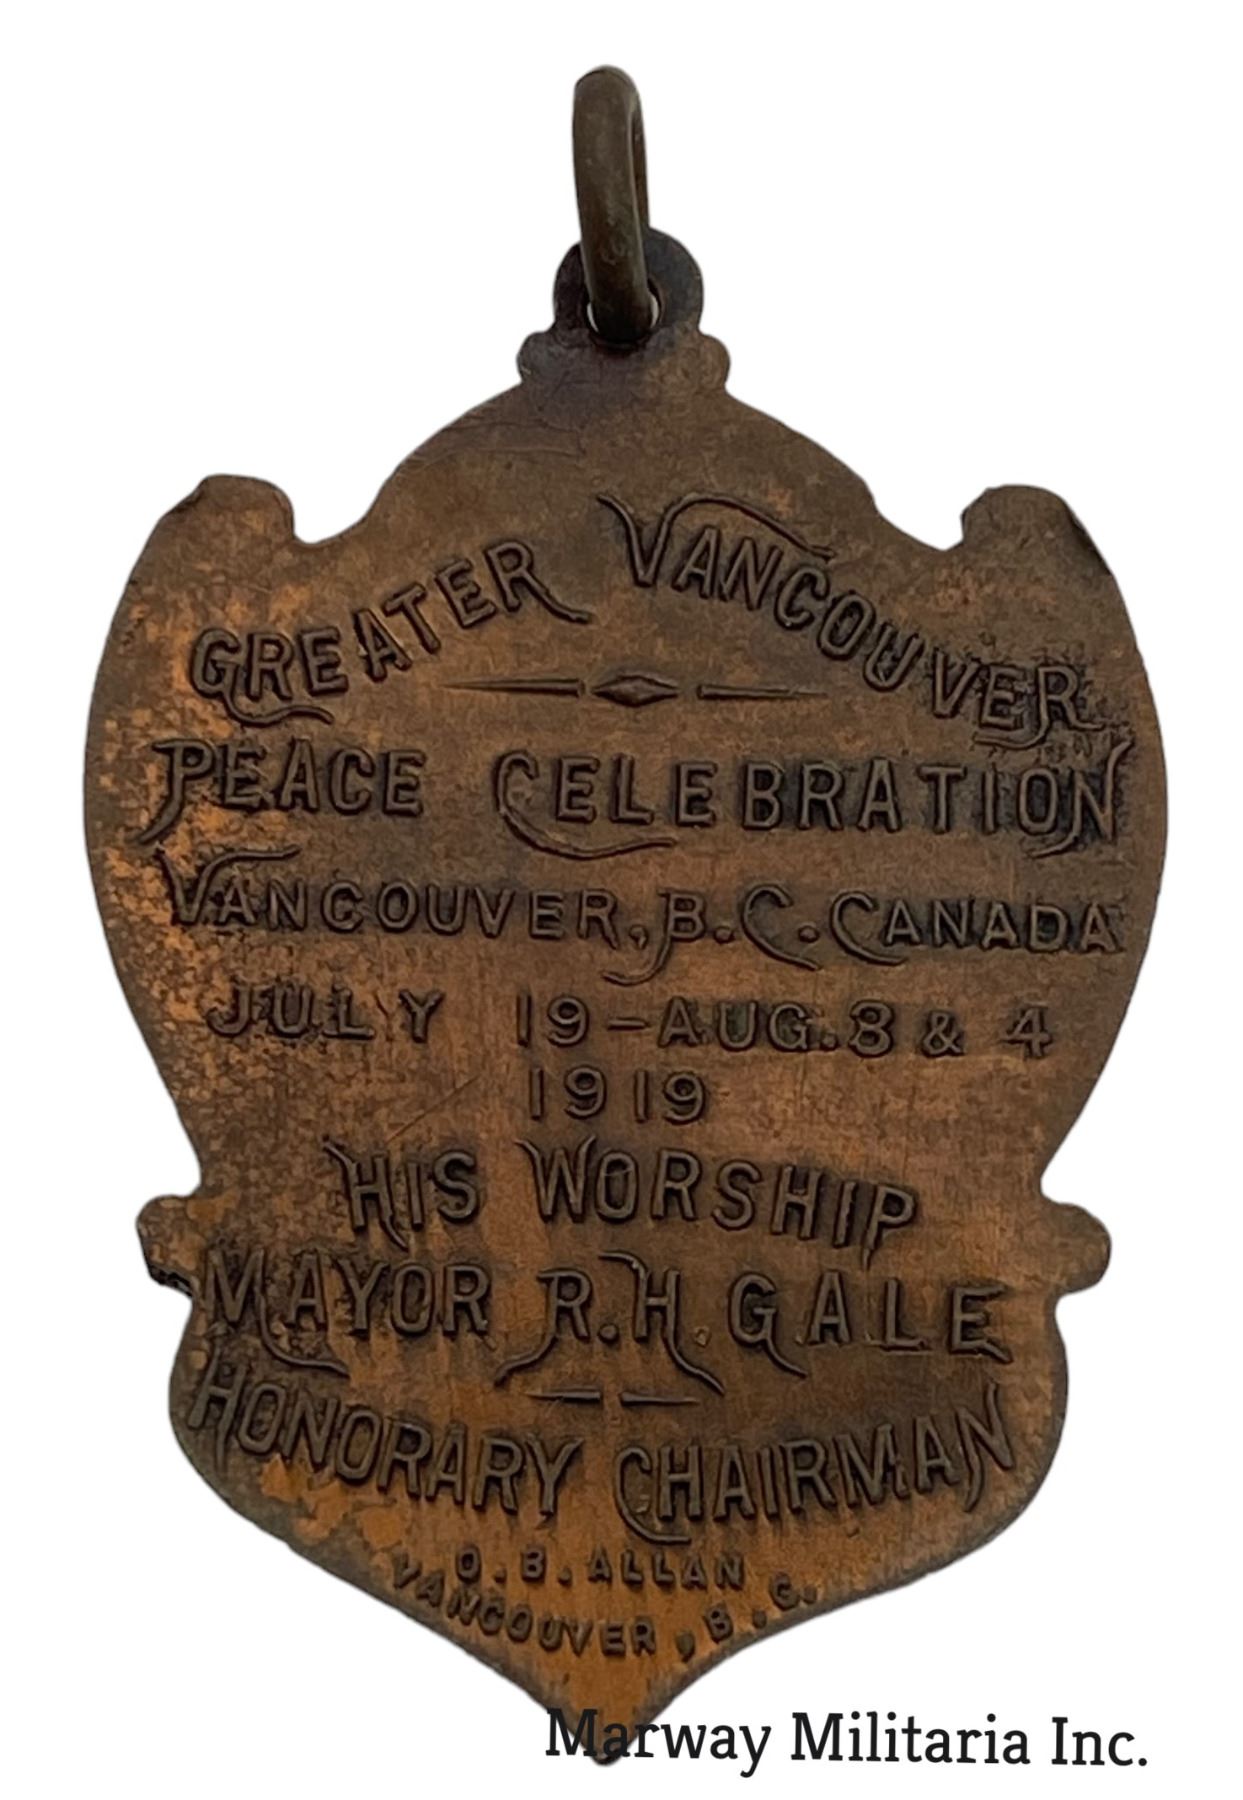 GREATER VANCOUVER
PEACE CELEBRATION
VANCOUVER, B.C. CANADA
JULY 19-AUG. 3 & 4
1919
HIS WORSHIP
MAYOR R.H. GALE
HONORARY CHAIRMAN
O.B. ALLAN
VANCOUVER, B.C.
Marway Militaria Inc.